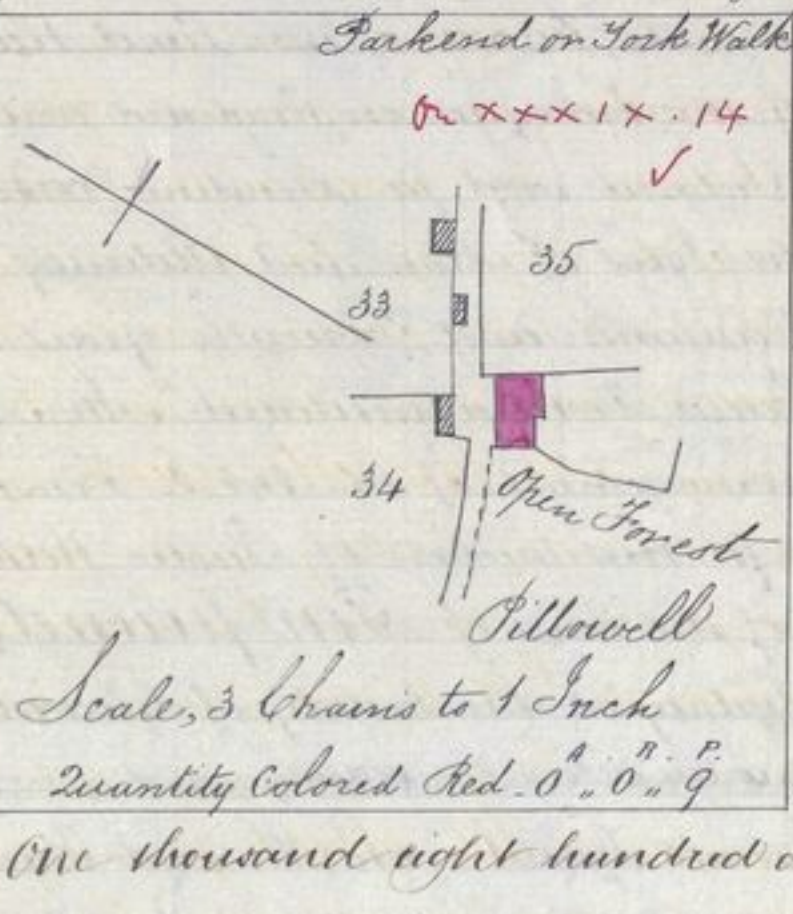 Parkend or York Walk
On XXXIX.14
35
33
34
Open Forest
Pillowell
Scale, 3 Chains to 1 Inch
A. R. P.
Quantity Colored Red - 0 .. 0 .. 9
One thousand eight hundred